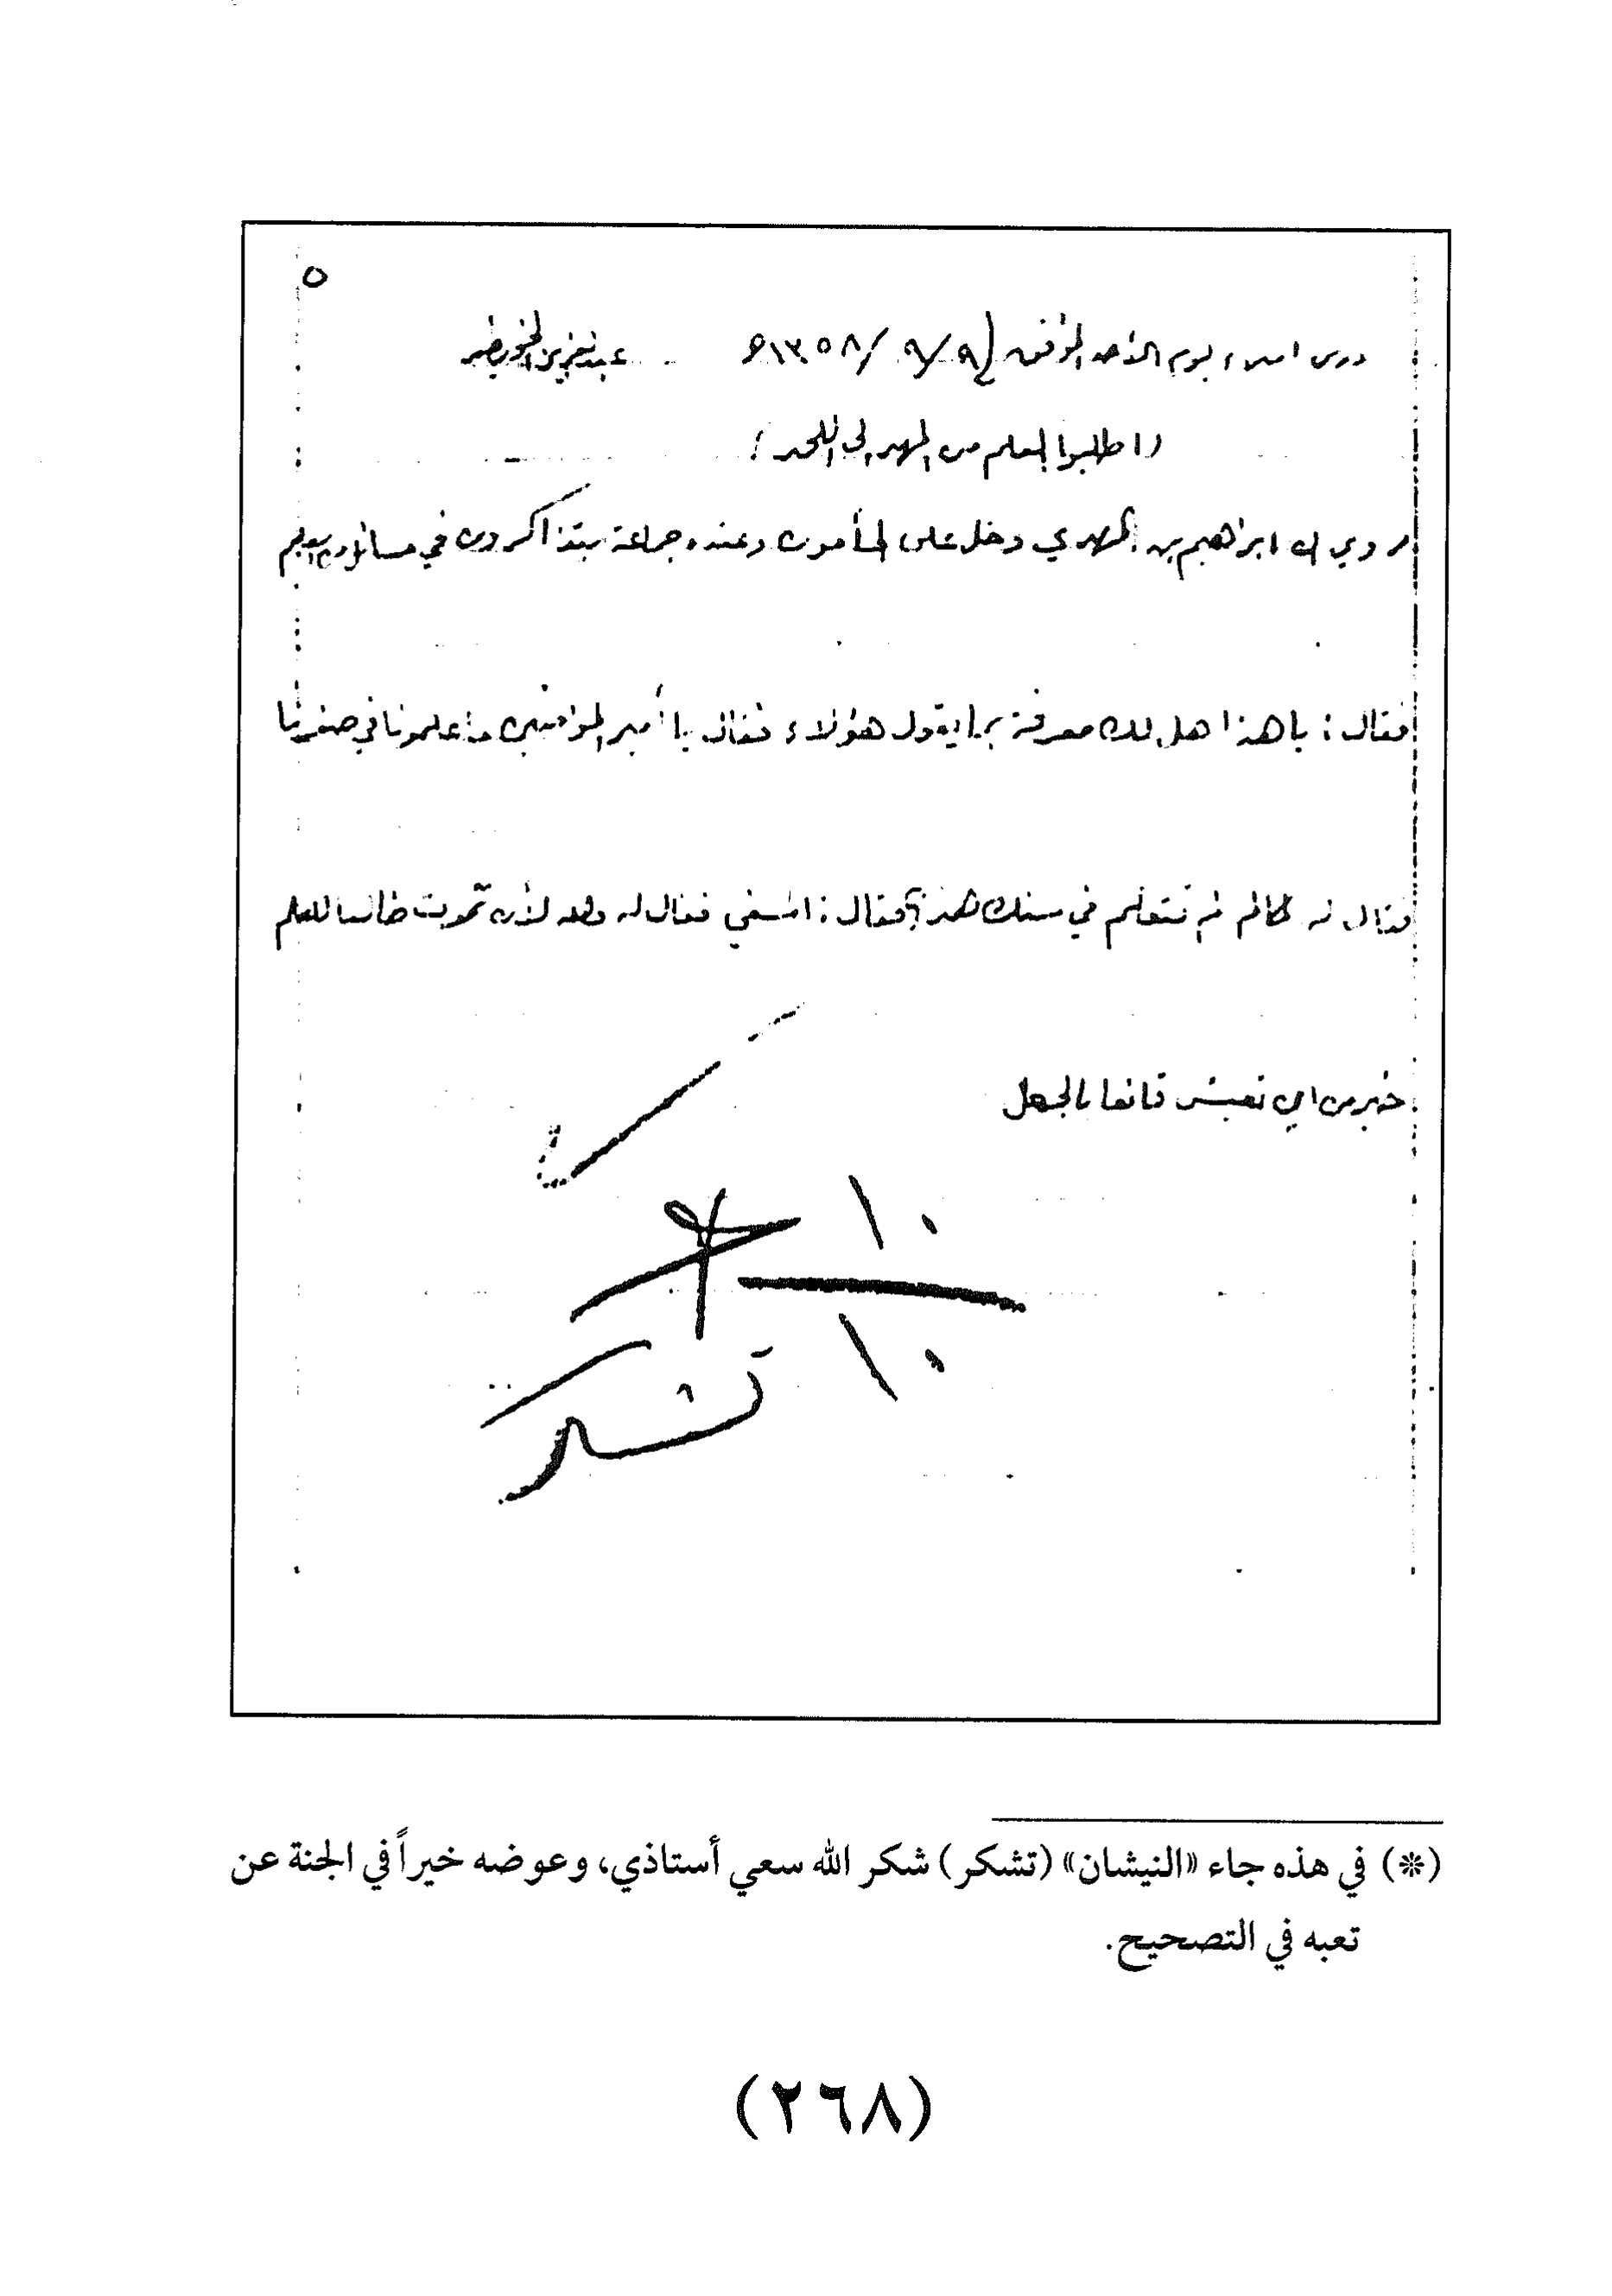 ٥
درس املاء يوم الأحد الموافق ٩/٩/١٣٥٨ عبدالعزيز الخويطر
(اطلبوا العلم من المهد الى اللحد)
روي ان ابراهيم بن المهدي دخل على المأمون وعنده جماعة يتذاكرون في مسائل العلم
فقال: يا هذا هل لك معرفة بما يقول هؤلاء فقال يا أمير المؤمنين ما علمونا في صغرنا
فقال له لم تتعلم في سنك هذه فقال: فقال له والله لأن تموت طالبا للعلم
خير من ان تعيش قانعا بالجهل
١٠
١٠
تشكر
(*) في هذه جاء «النيشان» (تشكر) شكر الله سعي أستاذي، وعوضه خيراً في الجنة عن
تعبه في التصحيح.
(٢٦٨)